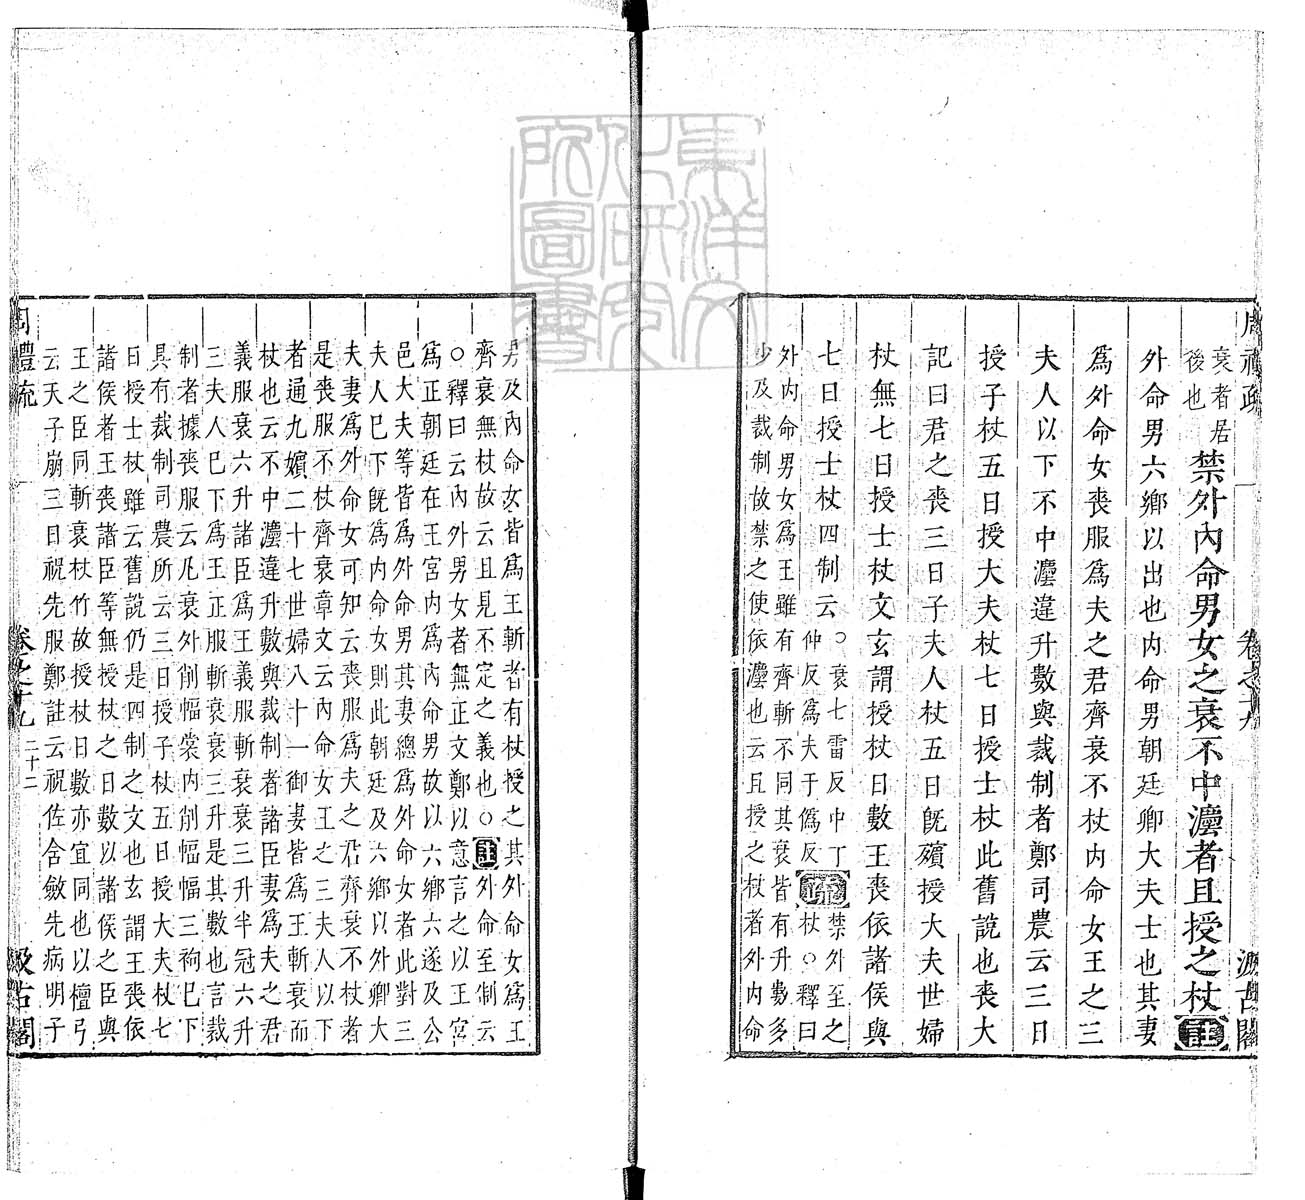 周禮疏 卷之十九 汲古閣
衰者居
後也
禁外內命男女之衰不中灋者且授之杖註
外命男六鄉以出也內命男朝廷卿大夫士也其妻
為外命女喪服為夫之君齊衰不杖內命女王之三
夫人以下不中灋違升數與裁制者鄭司農云三日
授子杖五日授大夫杖七日授士杖此舊說也喪大
記曰君之喪三日子夫人杖五日旣殯授大夫世婦
杖無七日授士杖文玄謂授杖日數王喪依諸侯與
七日授士杖四制云
○衰七雷反中丁
仲反為夫于偽反
疏
禁外至之
杖○釋曰
外內命男女為王雖有齊斬不同其衰皆有升數多
少及裁制故禁之使依灋也云且授之杖者外內命
男及內命女皆為王斬者有杖授之其外命女為王
齊衰無杖故云且見不定之義也○註外命至制云
○釋曰云內外男女者無正文鄭以意言之以王宮
為正朝廷在王宮內為內命男故以六鄉六遂及公
邑大夫等皆為外命男其妻總為外命女者此對三
夫人巳下旣為內命女則此朝廷及六鄉以外卿大
夫妻為外命女可知云喪服為夫之君齊衰不杖者
是喪服不杖齊衰章文云內命女王之三夫人以下
者通九嬪二十七世婦八十一御妻皆為王斬衰而
杖也云不中灋違升數與裁制者諸臣妻為夫之君
義服衰六升諸臣為王義服斬衰衰三升半冠六升
三夫人巳下為王正服斬衰衰三升是其數也言裁
制者據喪服云凡衰外削幅裳內削幅幅三袧巳下
具有裁制司農所云三日授子杖五日授大夫杖七
日授士杖雖云舊說仍是四制之文也玄謂王喪依
諸侯者王喪諸臣等無授杖之日數以諸侯之臣與
王之臣同斬衰杖竹故授杖日數亦宜同也以檀弓
云天子崩三日祝先服鄭註云祝佐含斂先病明子
周禮疏 卷之十九 二十二 汲古閣
東洋文
化研究
所圖書